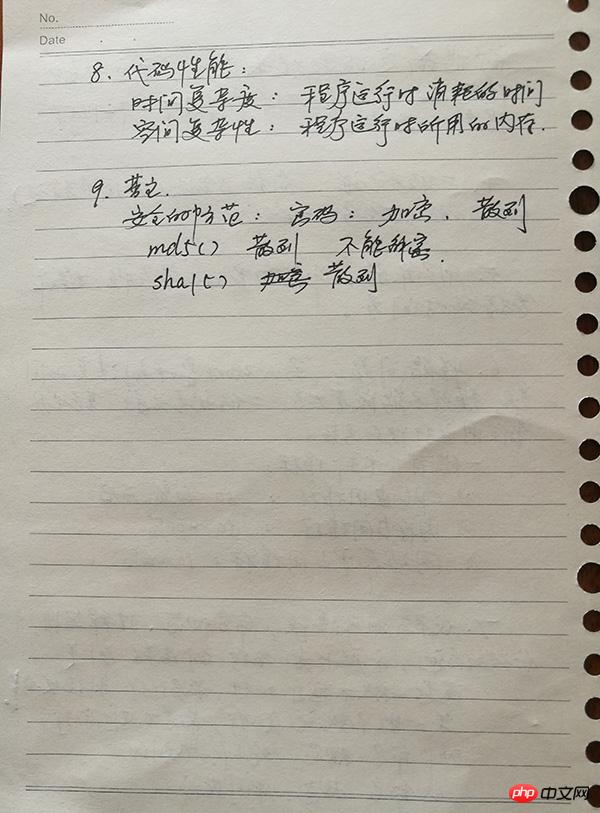 No.
Date
8. 代码性能:
时间复杂度: 程序运行时消耗的时间
空间复杂性: 程序运行时所用的内存.
9.
安全的防范: 密码: 加密. 散列
md5() 散列 不能解密.
sha1() 加密 散列
php 中文网